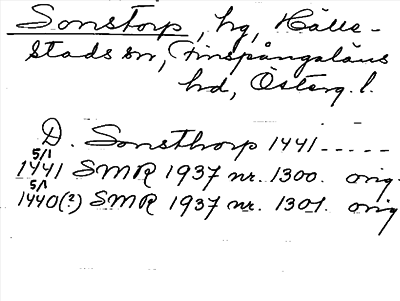 Sonstorp, hg, Hälle-
stads sn, Finspångaläns
hd, Österg. l.
D. Sonsthorp 1441 -----
5/1
1441 SMR 1937 nr. 1300. orig.
5/1
1440(?) SMR 1937 nr. 1301. orig